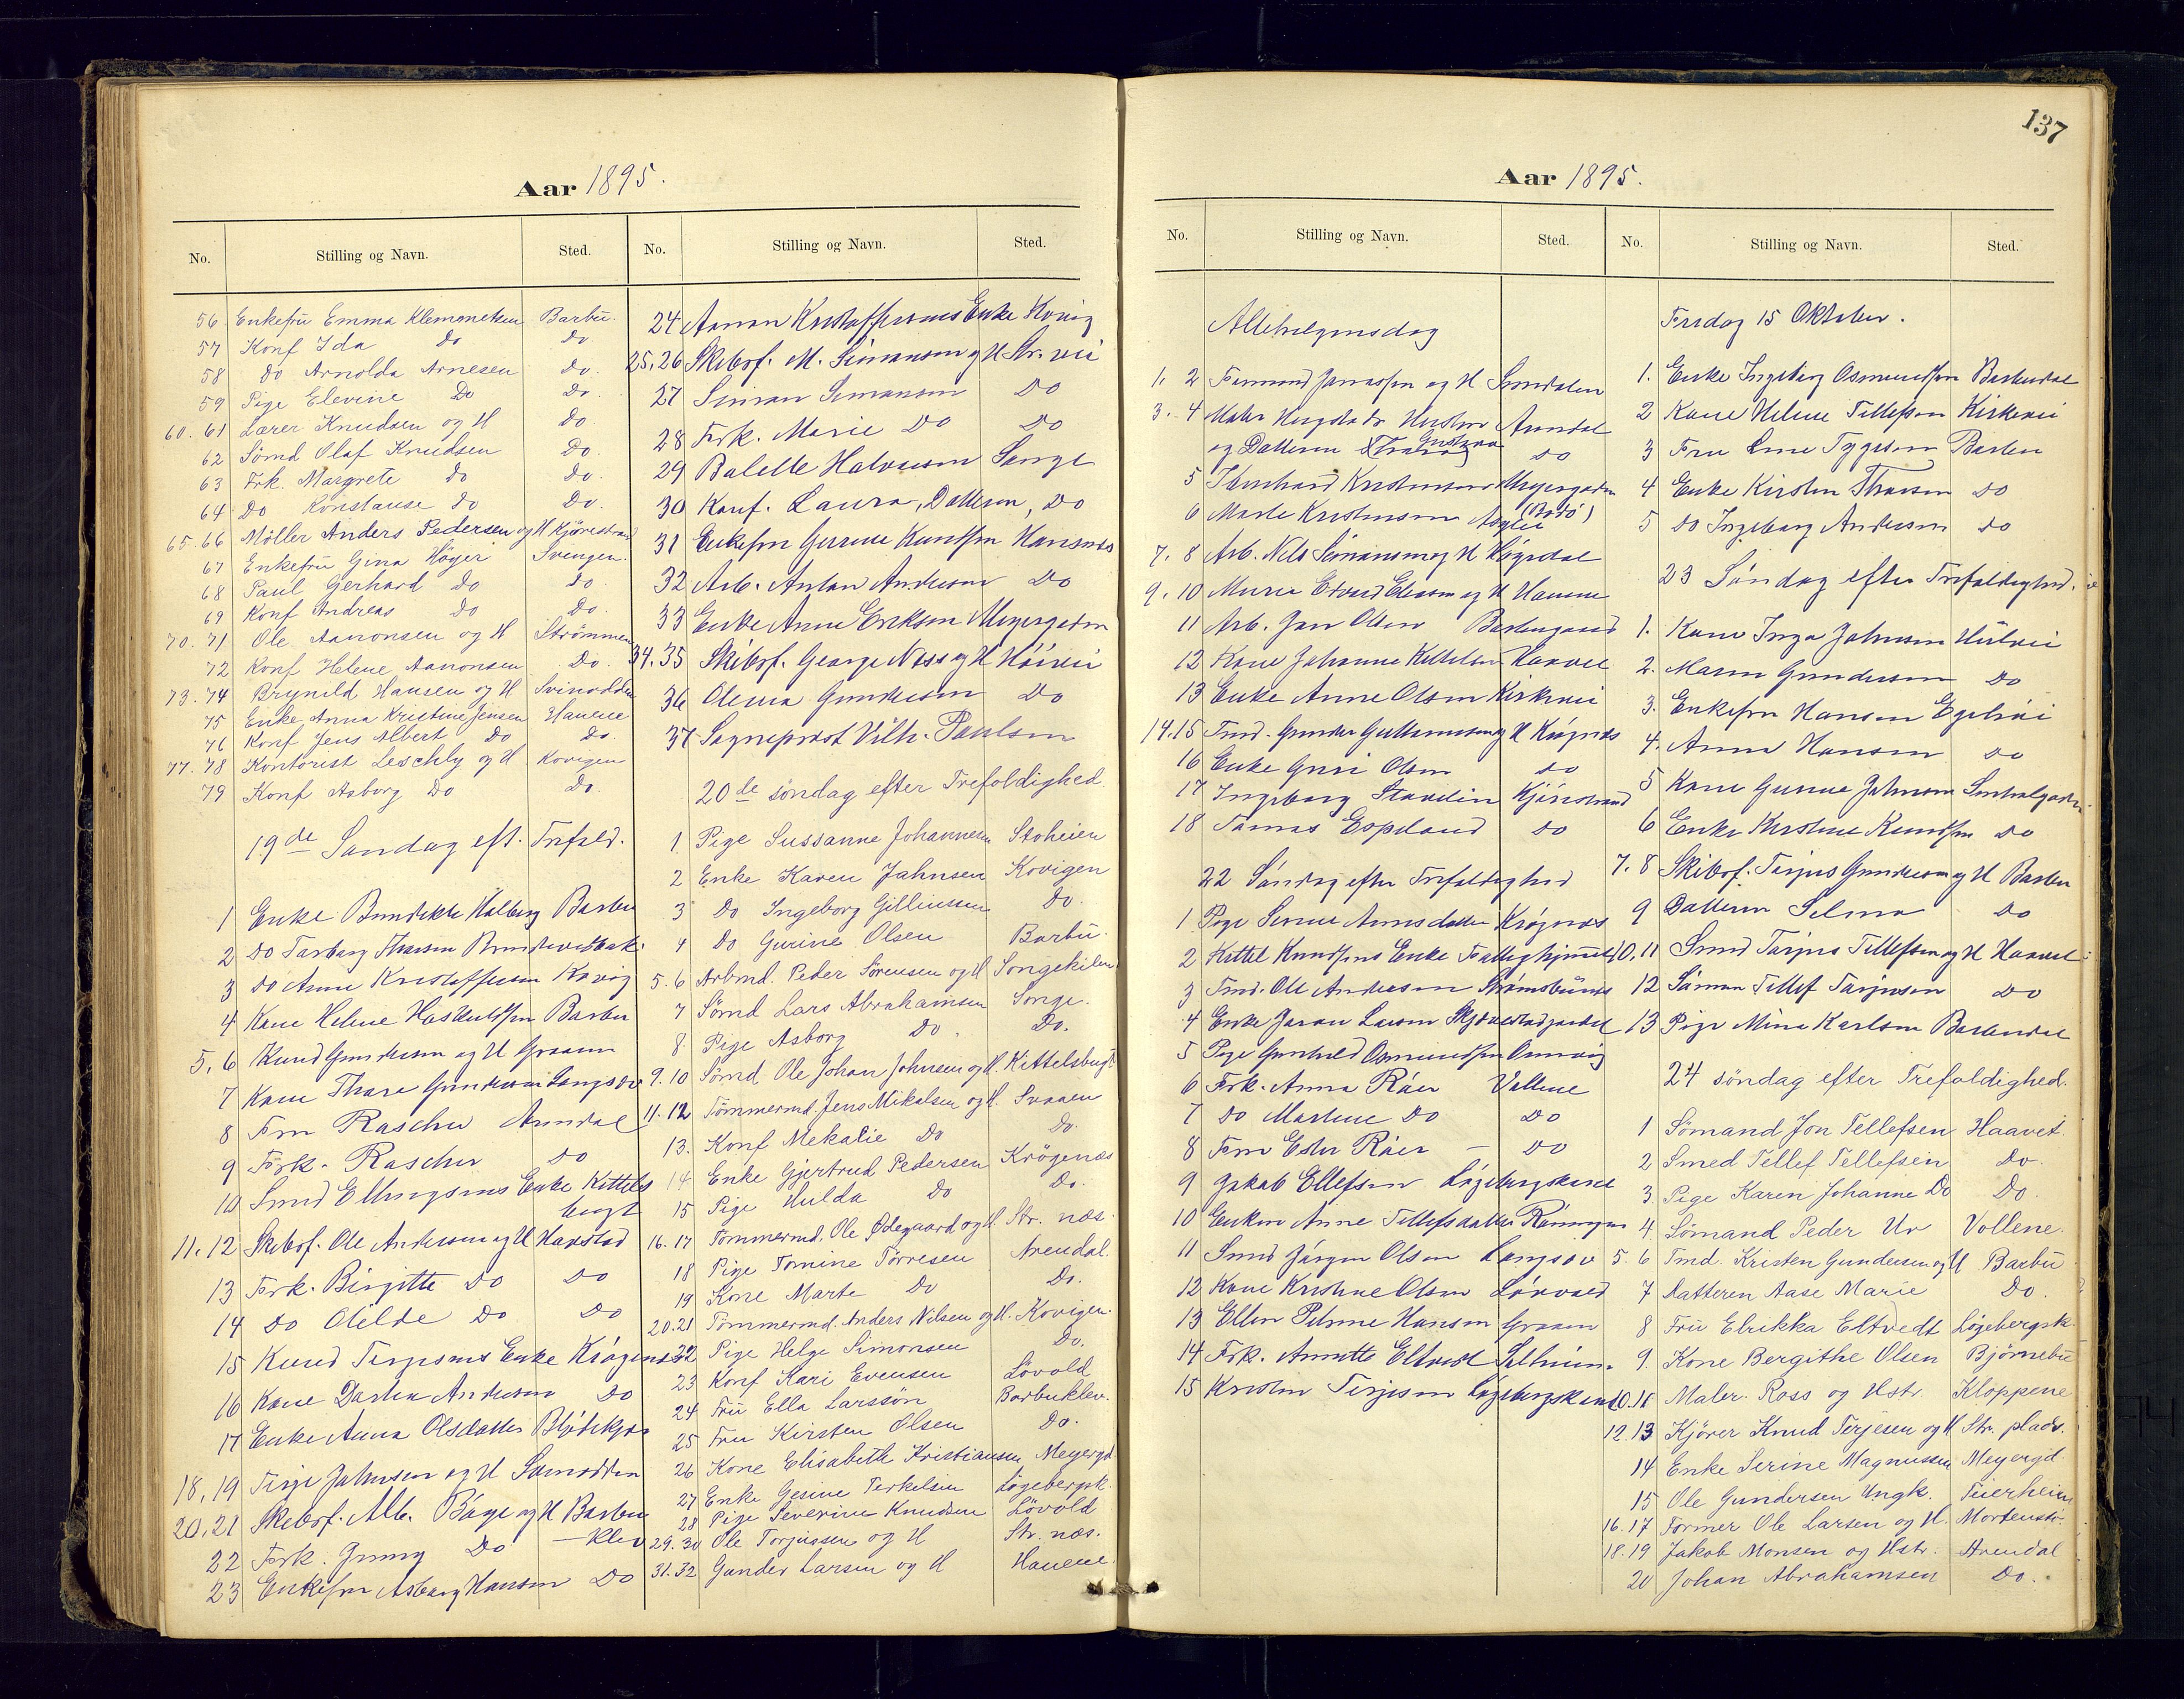 137
Aar 1895.
No. Stilling og Navn. Sted.
56. Enkefru Emma Klemmetsen Barbu.
57 Konf Ida Do Do
58 Do Arnolda Arnesen Do.
59 Pige Elevine Do Do.
60. 61 Lærer Knudsen og H Do.
62 Sømd Olaf Knudsen Do.
63 Frk. Margrete Do Do.
64 Do Konstanse Do Do.
65. 66 Møller Anders Pedersen og H Kjørestrand
67 Enkefru Gina Höger Svengen.
68 Paul Gerhard Do Do.
69 Konf Andreas Do Do.
70. 71 Ole Aanonsen og H Strømmen
72 Konf Helene Aanonsen Do.
73. 74 Brynild Hansen og H Svinodden
75 Enke Anna Kristine Jensen Hanene
76 Konf Jens Albert Do Do.
77. 78 Kontorist Leschly og H Kovigen
79 Konf Asborg Do Do.
19de Søndag eft. Trefold.
1 Enke Bendikte Halberg Barbu
2 Do Tarberg Thorsen
3 Do Anne Kristoffersen Kovig
4 Kone Helene Barbu
5, 6 Knud Gundersen og H Graaen
7 Kone Thore Gundersen Langsæ
8 Fru Rascher Arendal
9 Frk. Rascher Do
10 Smed Ellingsens Enke Kittels
bugt
11. 12 Skibsf. Ole Andersen og H Havstad
13 Frk. Birgitte Do Do
14 Do Otilde Do Do
15 Knud Terjesens Enke Krøgenes
16 Kone Dorthea Andersen Do
17 Enke Anna Olsdatter
18, 19 Terje Johnsen og H
20, 21 Skibsf. Alb. Bøge og H Barbu
22 Frk. Jenny Do – klev
23 Enkefru Asborg Hansen Do
No. Stilling og Navn. Sted.
24 Aanon Kristoffersens Enke Kovig
25, 26 Skibsf. M. Simonsen og H Str. vei
27 Simon Simonsen Do
28 Frk. Marie Do Do
29 Bolette Halvorsen Songe
30 Konf. Laura, Datteren, Do
31 Enkefru Gurine Knudsen Hansnæs
32 Arb. Anton Andersen Do
33 Enke Anne Eriksen Meyersgaden
34. 35 Skibsf. George Næss og H Høivei
36 Olena Gundersen Do
37 Sogneprest Vilh. Poulsen
20de søndag efter Trefoldighed
1 Pige Sussanne Johannesen Stoheien
2 Enke Karen Jahnsen Kovigen
3 Do Ingeborg Gillinssen Do.
4 Do Gurine Olsen Barbu.
5. 6 Arbmd. Peder Sørensen og H Songekilen
7 Sømd Lars Abrahamsen Songe.
8 Pige Asborg Do. Do.
9. 10 Sømd Ole Johan Johnsen og H. Kittelsbugt
11. 12 Tømmermd. Jens Mikalsen og H. Svaaen
13. Konf Mekalie Do Do.
14 Enke Gjertrud Pedersen Krøgenæs
15 Pige Hulda Do Do.
16. 17 Tømmermd. Ole Ødegaard og H Str. næs.
18 Pige Tomine Tørresen Arendal.
19 Kone Marte Do Do.
20. 21 Tømmermd. Anders Nilsen og H. Kovigen.
22 Pige Helge Simonsen Do.
23 Konf Kari Evensen Løvold
24 Fru Ella Larssøn Barbuklev.
25 Fru Kirsten Olsen Do.
26 Kone Elisabeth Kristiansen Meyergd
27 Enke Gesine Terkelsen Løgebergsk.
28 Pige Severine Knudsen Løvold
29. 30 Ole Torjussen og H Str. næs.
31. 32 Gunder Larsen og H Hanene.
Aar 1895.
No. Stilling og Navn. Sted.
Allehelgensdag
1. 2 og H
3. 4 Maler Hustru Arendal
og Datteren Gustava Do
5 Kristensen Meyersgaden
6 Marte Kristensen (Bodø)
7. 8 Arb. Nils Simonsen og H Løgedal
9. 10 Murer Edvard Eliassen og H Hanene
11 Arb. Jan Olsen Barbugaard
12 Kone Johanne Kittelsen Haavet
13 Enke Anne Olsen Kirkevei
14. 15 Tmd. Gunder Guttormsen og H Krøgenæs
16 Enke Guri Olsen Do
17 Ingeborg Kjørestrand
18 Tomas Espeland Do
22 Søndag efter Trefoldighed
1 Pige Serine Annisdatter Krøgenæs
2 Kittel Knudsens Enke Fattighjemmet
3 Tmd. Ole Andersen Strømsbunes
4 Enke Joran Larsen
5 Pige Gunhild Osmundsen
6 Frk. Anna Røer Vollene
7 Do Martine Do Do
8 Fru Ester Røer – Do
9 Jakob Ellefsen Løgebergskaret
10 Enken Anne Tellefsdatter Røningen
11 Smed Jørgen Olsen Langsæv
12 Kone Kristine Olsen Løvold
13 Ellen Hansen Graaen
14 Frk. Annette Eltvedt
15 Kristen Terjesen Løgebergskaret
No. Stilling og Navn. Sted.
Fredag 15 Oktober.
1. Enke Ingeborg Osmundsen Barbudal
2 Kone Helene Tellefsen Kirkevei
3 Fru Line Tygesen Barbu
4 Enke Kirsten Thorsen Do
5 Do Ingeborg Andersen Do
23 Søndag efter Trefoldighed.
1. Kone Inga Johnsen
2. Maren Gundersen Do
3. Enkefru Hansen
4. Anna Hansen Do
5 Kone Gunne Johnsen
6 Enke Kirstine Knudsen Do
7. 8 Skibsf. Torjus Gundersen og H Barbu
9 Datteren Selma Do
10. 11 Smed Torjus Tellefsen og H Haavet
12 Søman Tellef Torjusen Do
13 Pige Mina Karlsen Barbudal
24 søndag efter Trefoldighed.
1 Sømand Jon Tellefsen Haavet.
2 Smed Tellef Tellefsen Do.
3. Pige Karen Johanne Do Do.
4. Sømand Peder Ur Vollene.
5. 6 Tmd. Kristen Gundersen og H Barbu
7 Datteren Aase Marie Do.
8 Fru Elrikka Eltvedt Løgebergsk.
9. Kone Bergithe Olsen Bjørnebu
10. 11 Maler. Ross og Hstr. Kloppene
12. 13 Kjører Knud Terjesen og H Str. plads.
14 Enke Serine Magnussen Meyergd.
15 Ole Gundersen Ungk. Feierheien
16. 17 Former Ole Larsen og H. Mortenstr.
18. 19 Jakob Monsen og Hstr. Arendal
20 Johan Abrahamsen Do.